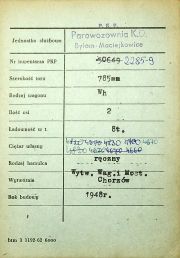 P. K. P.
Jednostka służbowa
Parowozownia K.D.
Bytom-Maciejkowice
Nr inwentarza PKP 50649 2285-9
Szerokość toru 785mm
Rodzaj wagonu Wh
Ilość osi 2
Ładowność w t 8t.
Ciężar własny
ręczny
Rodzaj hamulca
Wytw. Wag. i Most.
Wytwórnia Chorzów
Rok budowy 1948r.